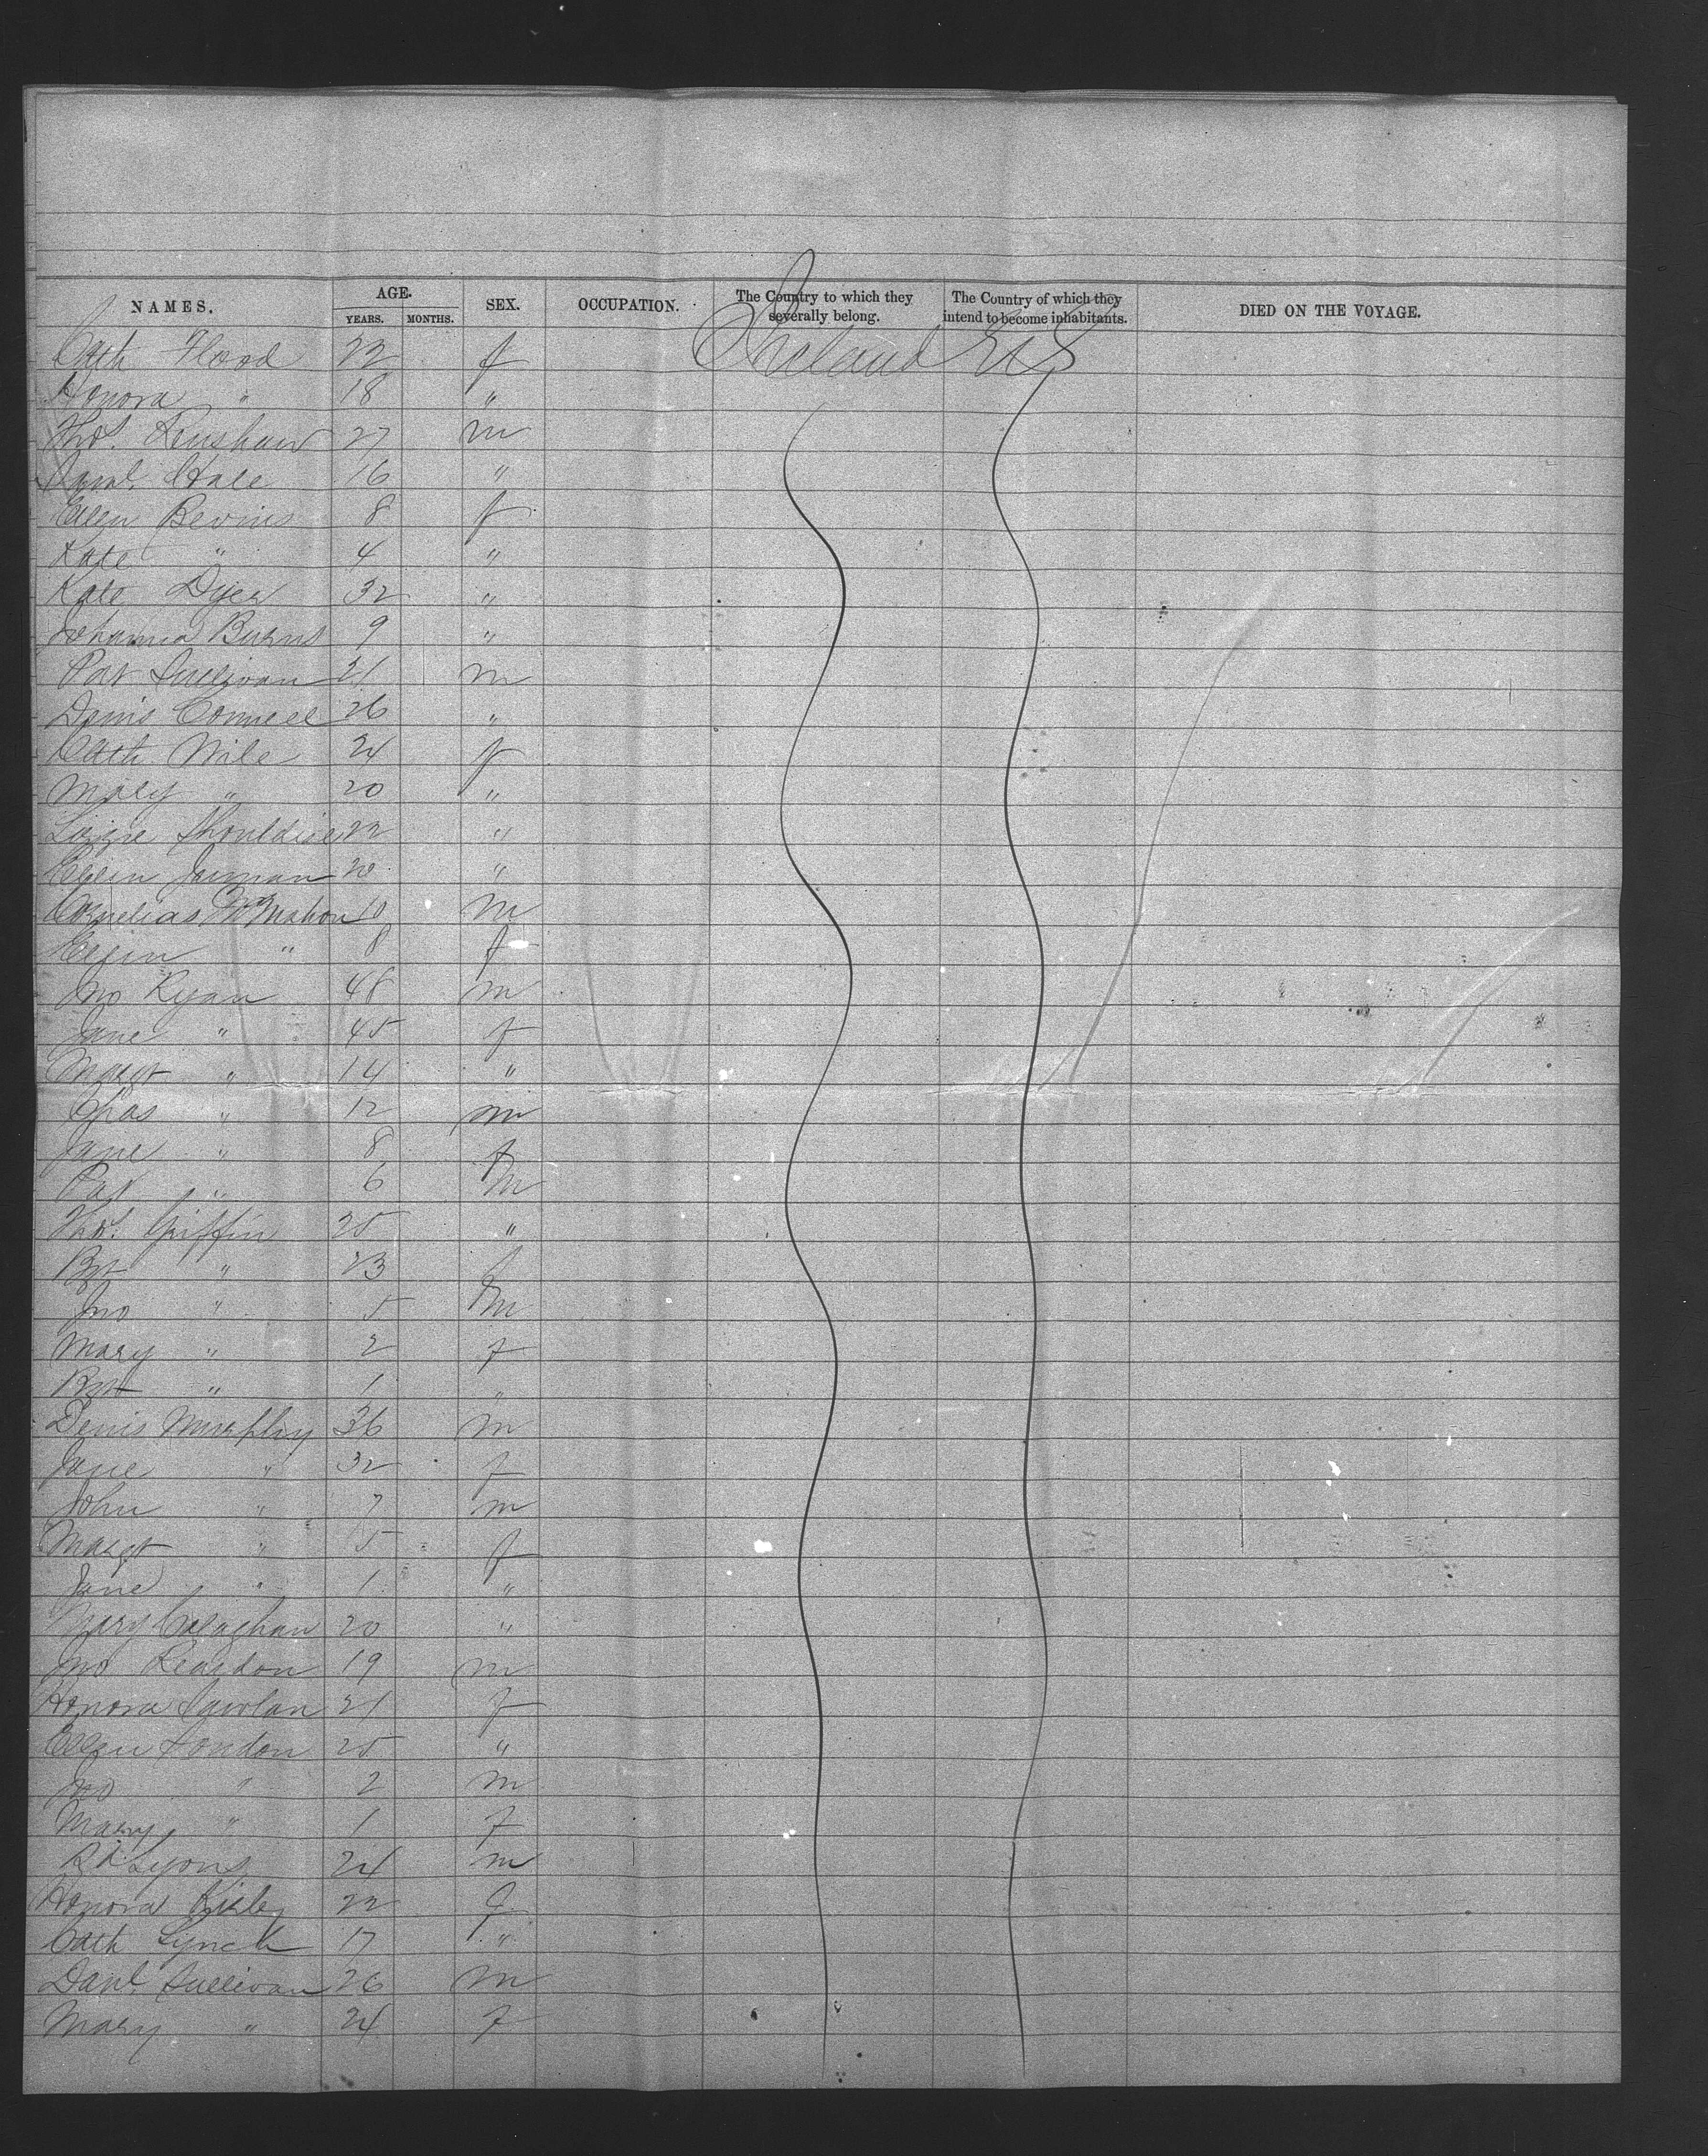 NAMES. AGE. SEX. OCCUPATION. The Country to which they severally belong. The Country of which they intend to become inhabitants. DIED ON THE VOYAGE.
YEARS. MONTHS.
Cath Flood 22 f Ireland US
Honora " 18 "
Thos. Renshaw 27 m
Saml. Hale 16 "
Ellen Bevins 8 f
Kate " 4 "
Kate Dyer 32 "
Johanna Burns 9 "
Pat Sullivan 21 m
Denis Connell 26 "
Cath Wile 24 f
Mary " 20 "
Lizzie Shouldice 22 "
Ellen Jarman 20 "
Cornelias McMahon 10 m
Ellen " 8 f
Jno Ryan 48 m
Jane " 45 f
Margt " 14 "
Chas " 12 m
Jane " 8 f
Pat " 6 m
Thos. Griffin 25 "
Bgt " 23 f
Jno " 5 m
Mary " 2 f
Bgt " 1 "
Denis Murphy 36 m
Jane " 32 f
John " 7 m
Margt " 5 f
Jane " 1 "
Mary Calaghan 20 "
Jno Reardon 19 m
Honora 21 f
Ellen London 25 "
Jno " 2 m
Mary " 1 f
Rd Lyons 24 m
Honora 22 f
Cath Lynch 17 "
Danl. Sullivan 26 m
Mary " 24 f